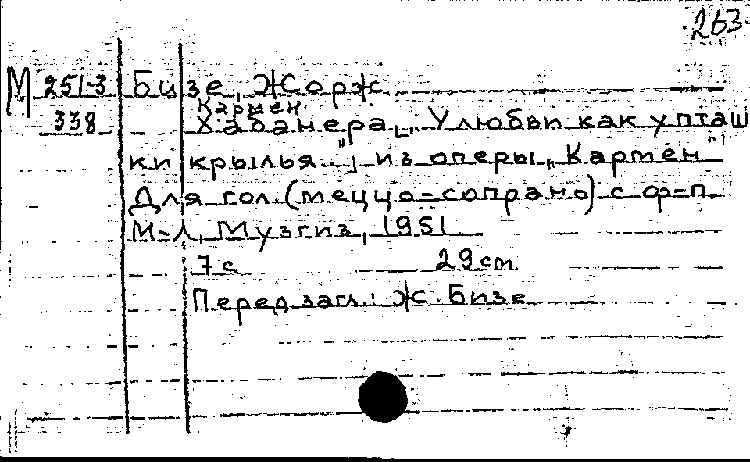 263.
М 251-3 Бизе, Жорж
Кармен
338 Хабанера „У любви как у пташ
ки крылья..." из оперы „Кармен"
Для гол. (меццо=сопрано) с ф=п.
М-Л, Музгиз, 1951
7с 29см
Перед загл.: Ж. Бизе